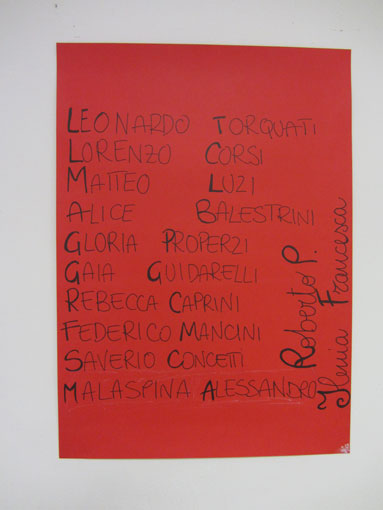 LEONARDO TORQUATI
LORENZO CORSI
MATTEO LUZI
ALICE BALESTRINI
GLORIA PROPERZI
GAIA GUIDARELLI
REBECCA CAPRINI
FEDERICO MANCINI
SAVERIO CONCETTI
MALASPINA ALESSANDRO
Roberto P.
Ilenia Francesca